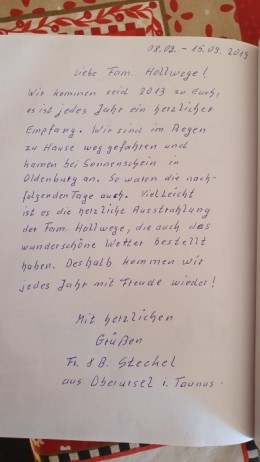 08.09. - 15.09.2019
Liebe Fam. Hollwege!
Wir kommen seid 2013 zu Euch,
es ist jedes Jahr ein herzlicher
Empfang. Wir sind im Regen
zu Hause weg gefahren und
kamen bei Sonnenschein in
Oldenburg an. So waren die nach-
folgenden Tage auch. Vielleicht
ist es die herzliche Ausstrahlung
der Fam. Hollwege, die auch das
wunderschöne Wetter bestellt
haben. Deshalb kommen wir
jedes Jahr mit Freude wieder!
Mit herzlichen
Grüßen
Fr. & B. Steckel
aus Oberursel i. Taunus.